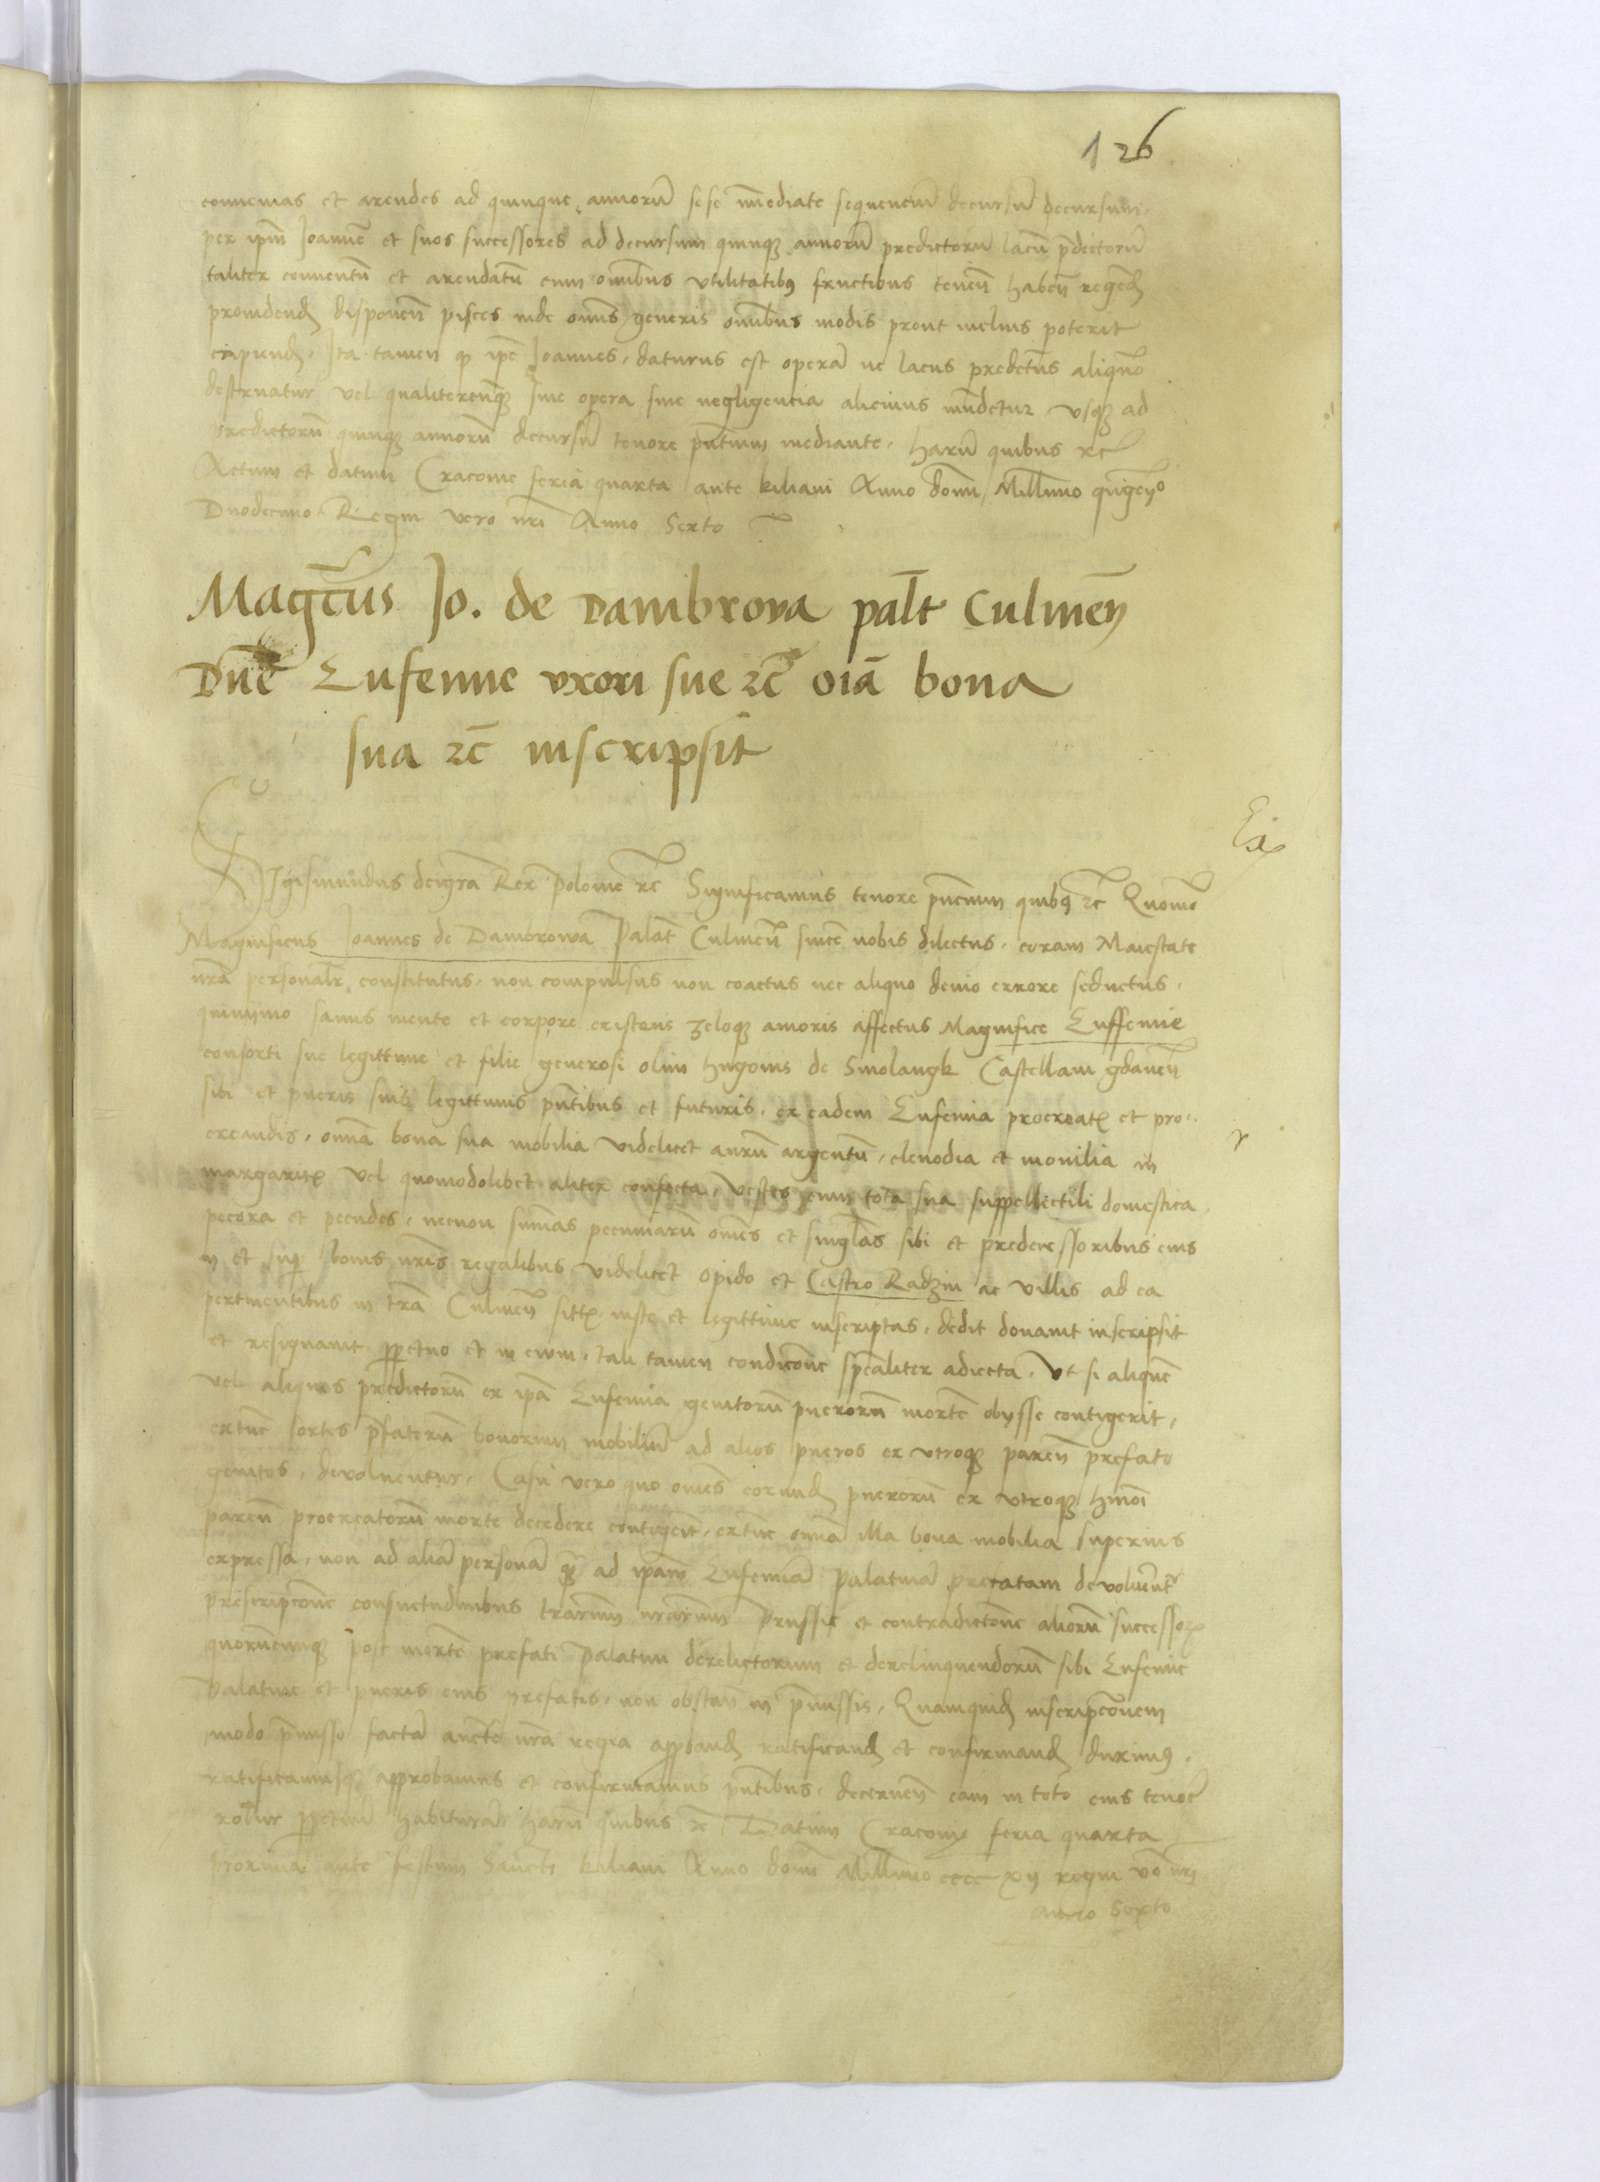 126
convenias et arendes ad quinque annorũ sese im̃ediate sequenciũ decursũ decursum
per ip̃m Joannẽ et suos successores ad decursum quinqꝫ annorũ predictorũ lacũ p̃dictorũ
taliter conventũ et arendatũ cum om̃ibus utilitatibꝯ fructibus tenen̄ haben̄ regen̄d
providend̄ disponen̄ pisces inde om̃is generis om̃ibus modis prout melius poterit
capiend̄. Ita tamen qꝫ ip̃e Joannes daturus est operã ne lacus predict̃us aliqũo
destruatur vel qualitercunqꝫ sive opera sive negligencia alicuius usqꝫ ad
predictorũ quinqꝫ annorũ decursũ tenore pñtium mediante. Harũ quibus ꝛc̃
Actum et datum Cracovie feria quarta ante kiliani Anno domĩ Mill̃imo qu̇ingẽ̃ᵒ
Duodecimo Regni vero nr̃i Anno Sexto
Magc̃us Jo. de Dambrova pal̃t Culmen̄
Dñe Eufemie uxori sue ꝛc̃ oĩa bona
sua ꝛc̃ inscripsit
Ex
Sigismundus dei grã Rex Polonie ꝛc̃ Significamus tenore pñcium quibꝯ ꝛc̃ Quomõ
Magnificus Joannes de Dambrowa Palat̃ Culmen̄ sincẽ nobis dilectus. coram Maiestate
nrã personalr̃ constitutus. non compulsus non coactus nec aliquo devio errore seductus.
quinimo sanus mente et corpore existens zeloqꝫ amoris affectus Magnifice Euffemie
consorti sue legittime et filie generosi olim Hugonis de Smolangk Castellani gdanen̄
sibi et pueris suis legittimis pñtibus et futuris. ex eadem Eufemia procreatꝭ et pro-
creandis. omñã bona sua mobilia videlicet aurũ argentũ. clenodia et monilia in
margaritꝭ vel quomodolibet aliter confecta. vestes cum tota sua suppellectili domestica
pecora et pecudes. necnon sum̃as pecuniarũ om̃es et singlãs sibi et predecessoribus eius
in et sup̱ bonis nr̃is regalibus videlicet opido et Castro Radzin ac villis ad ea
pertinentibus in trã Culmen̄ sitꝭ iuste et legittime inscriptas. dedit donavit inscripsit
et resignavit ꝑpetuo et in evum. tali tamen condiciõne spẽaliter adiecta. Ut si aliquẽ
vel aliquos predictorũ ex ip̃a Eufemia genitorũ puerorũ mortẽ obysse contigerit.
extunc sortes p̃fatorũ bonorum mobiliũ ad alios pueros ex utroqꝫ paren̄ prefato
genitos. devolventur. Casu vero quo om̃es eorund̄ puerorũ ex utroqꝫ hm̃oi
paren̄ procreatorũ morte decedere contigerit. extunc omñã illa bona mobilia superius
expressa. non ad aliã personã qꝫ̃ ad ip̃am Eufemiã Palatinã prefatam devolvent̃
prescripciõne consuetudinibus trãrum nr̃arum Prussie et contradictiõne aliorũ successoꝝ
quorũcunqꝫ post mortẽ prefati Palatini derelictorum et derelinquendorũ sibi Eufemie
Palatine et pueris eius prefatis. non obstan̄ in p̃missis. Quamquid̄ inscripciõnem
modo p̃misso factã auctẽ nrã regia approband̄ ratificand̄ et confirmand̄ duximꝯ.
ratificamusqꝫ approbamus et confirmamus pñtibus. decernen̄ eam in toto eius tenorẽ
robur ꝑpetuũ habiturã. harũ quibus ꝛc̃ Datum Cracovie feria quarta
proxima ante festum Sancti kiliani Anno domĩ Mill̃imo cccccxij regni võ nr̃i
anno Sexto